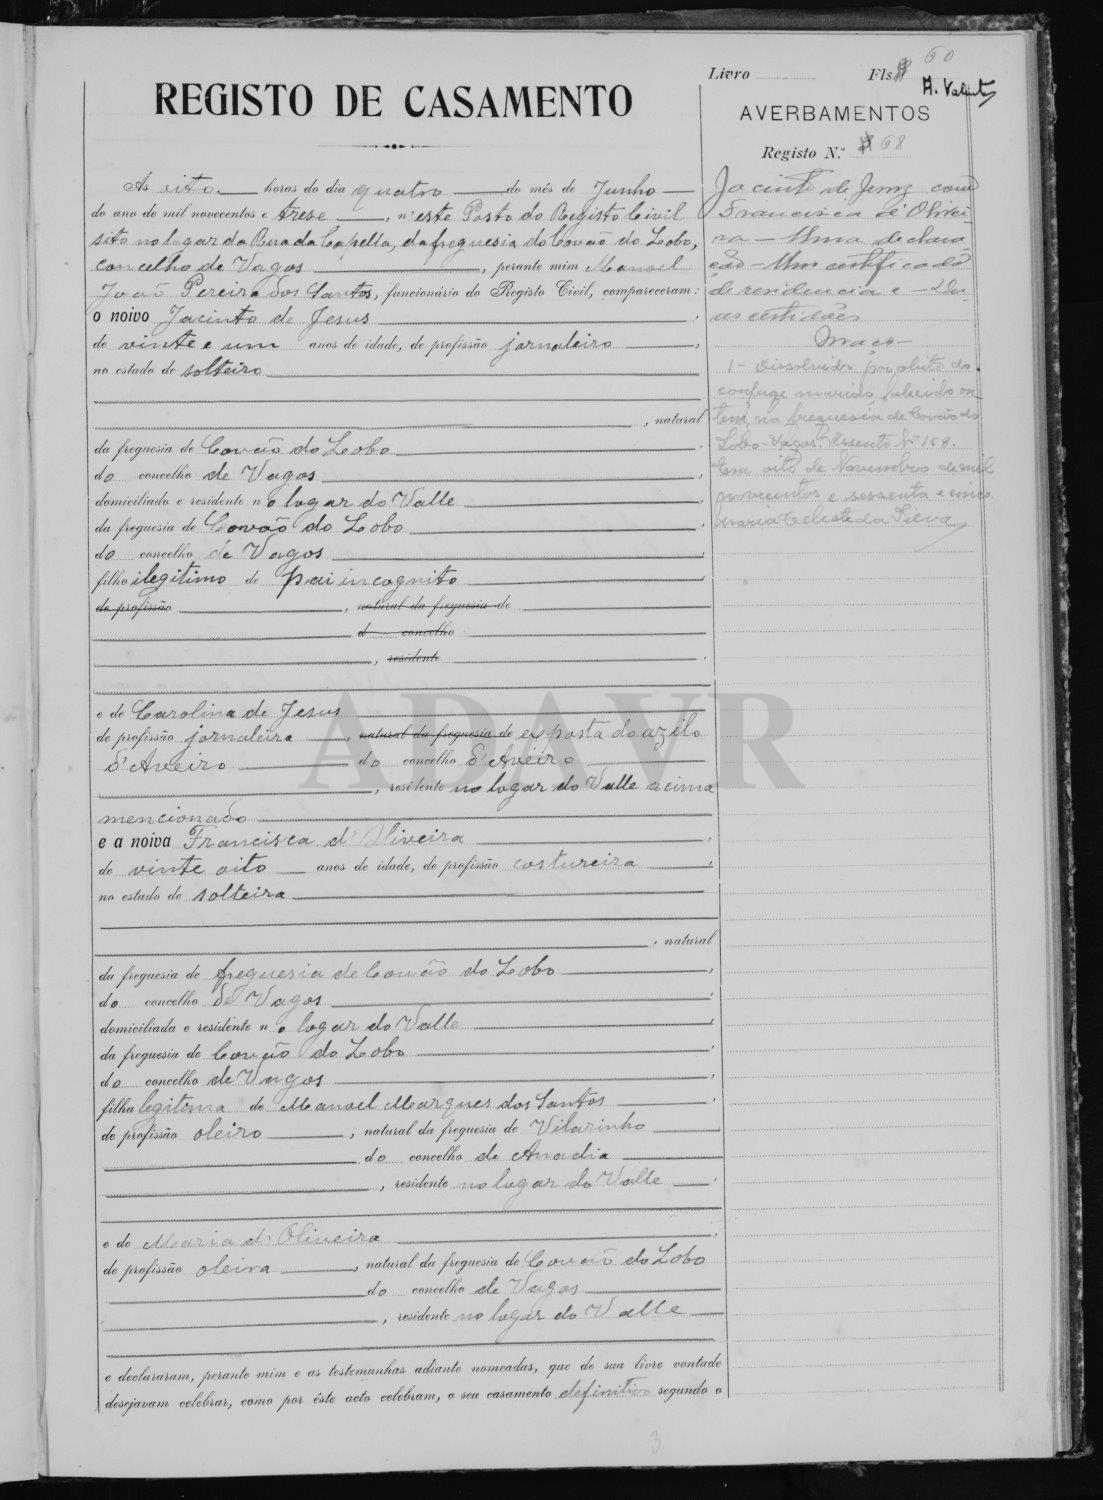 60
Livro Fls.
A. Valente
REGISTO DE CASAMENTO
AVERBAMENTOS
Registo N.º 68
Às oito horas do dia quatro do mês de Junho
do ano de mil novecentos e trese, n'este Posto do Registo Civil
sito no logar da Rua da Capella, da freguesia do Covão do Lobo,
concelho de Vagos, perante mim Manoel
João Pereira dos Santos, funcionário do Registo Civil, compareceram:
o noivo Jacinto de Jesus,
de vinte e um anos de idade, de profissão jornaleiro,
no estado de solteiro
, natural
da freguesia de Covão do Lobo,
do concelho de Vagos,
domiciliado e residente no logar do Valle,
da freguesia de Covão do Lobo,
do concelho de Vagos,
filho ilegitimo de pai incognito,
de profissão, natural da freguesia de
d concelho
, residente,
e de Carolina de Jesus
de profissão jornaleira, natural da freguesia de exposta do azilo
d'Aveiro do concelho d'Aveiro
, residente no logar do Valle acima
mencionado
e a noiva Francisca d'Oliveira,
de vinte oito anos de idade, de profissão costureira,
no estado de solteira
, natural
da freguesia de freguesia de Covão do Lobo,
do concelho de Vagos,
domiciliada e residente no logar do Valle,
da freguesia de Covão do Lobo,
do concelho de Vagos,
filha legitima de Manoel Marques dos Santos,
de profissão oleiro, natural da freguesia de Vilarinho
do concelho de Anadia
, residente no logar do Valle,
e de Maria d'Oliveira,
de profissão oleira, natural da freguesia de Covão do Lobo
do concelho de Vagos
, residente no logar do Valle
e declararam, perante mim e as testemunhas adiante nomeadas, que de sua livre vontade
desejavam celebrar, como por êste acto celebram, o seu casamento definitivo segundo o
Jacinto de Jesus com
Francisca d'Olivei-
ra — Uma declara-
ção — Um certificado
de residencia e — Du-
as certidões
Maço —
1 – Dissolvido por óbito do
conjuge marido, falecido on-
tem, na freguesia de Covão do
Lobo – Vagos. Assento Nº 168.
Em oito de Novembro de mil
novecentos e sessenta e cinco.
Maria Celeste da Silva
ADAVR
3